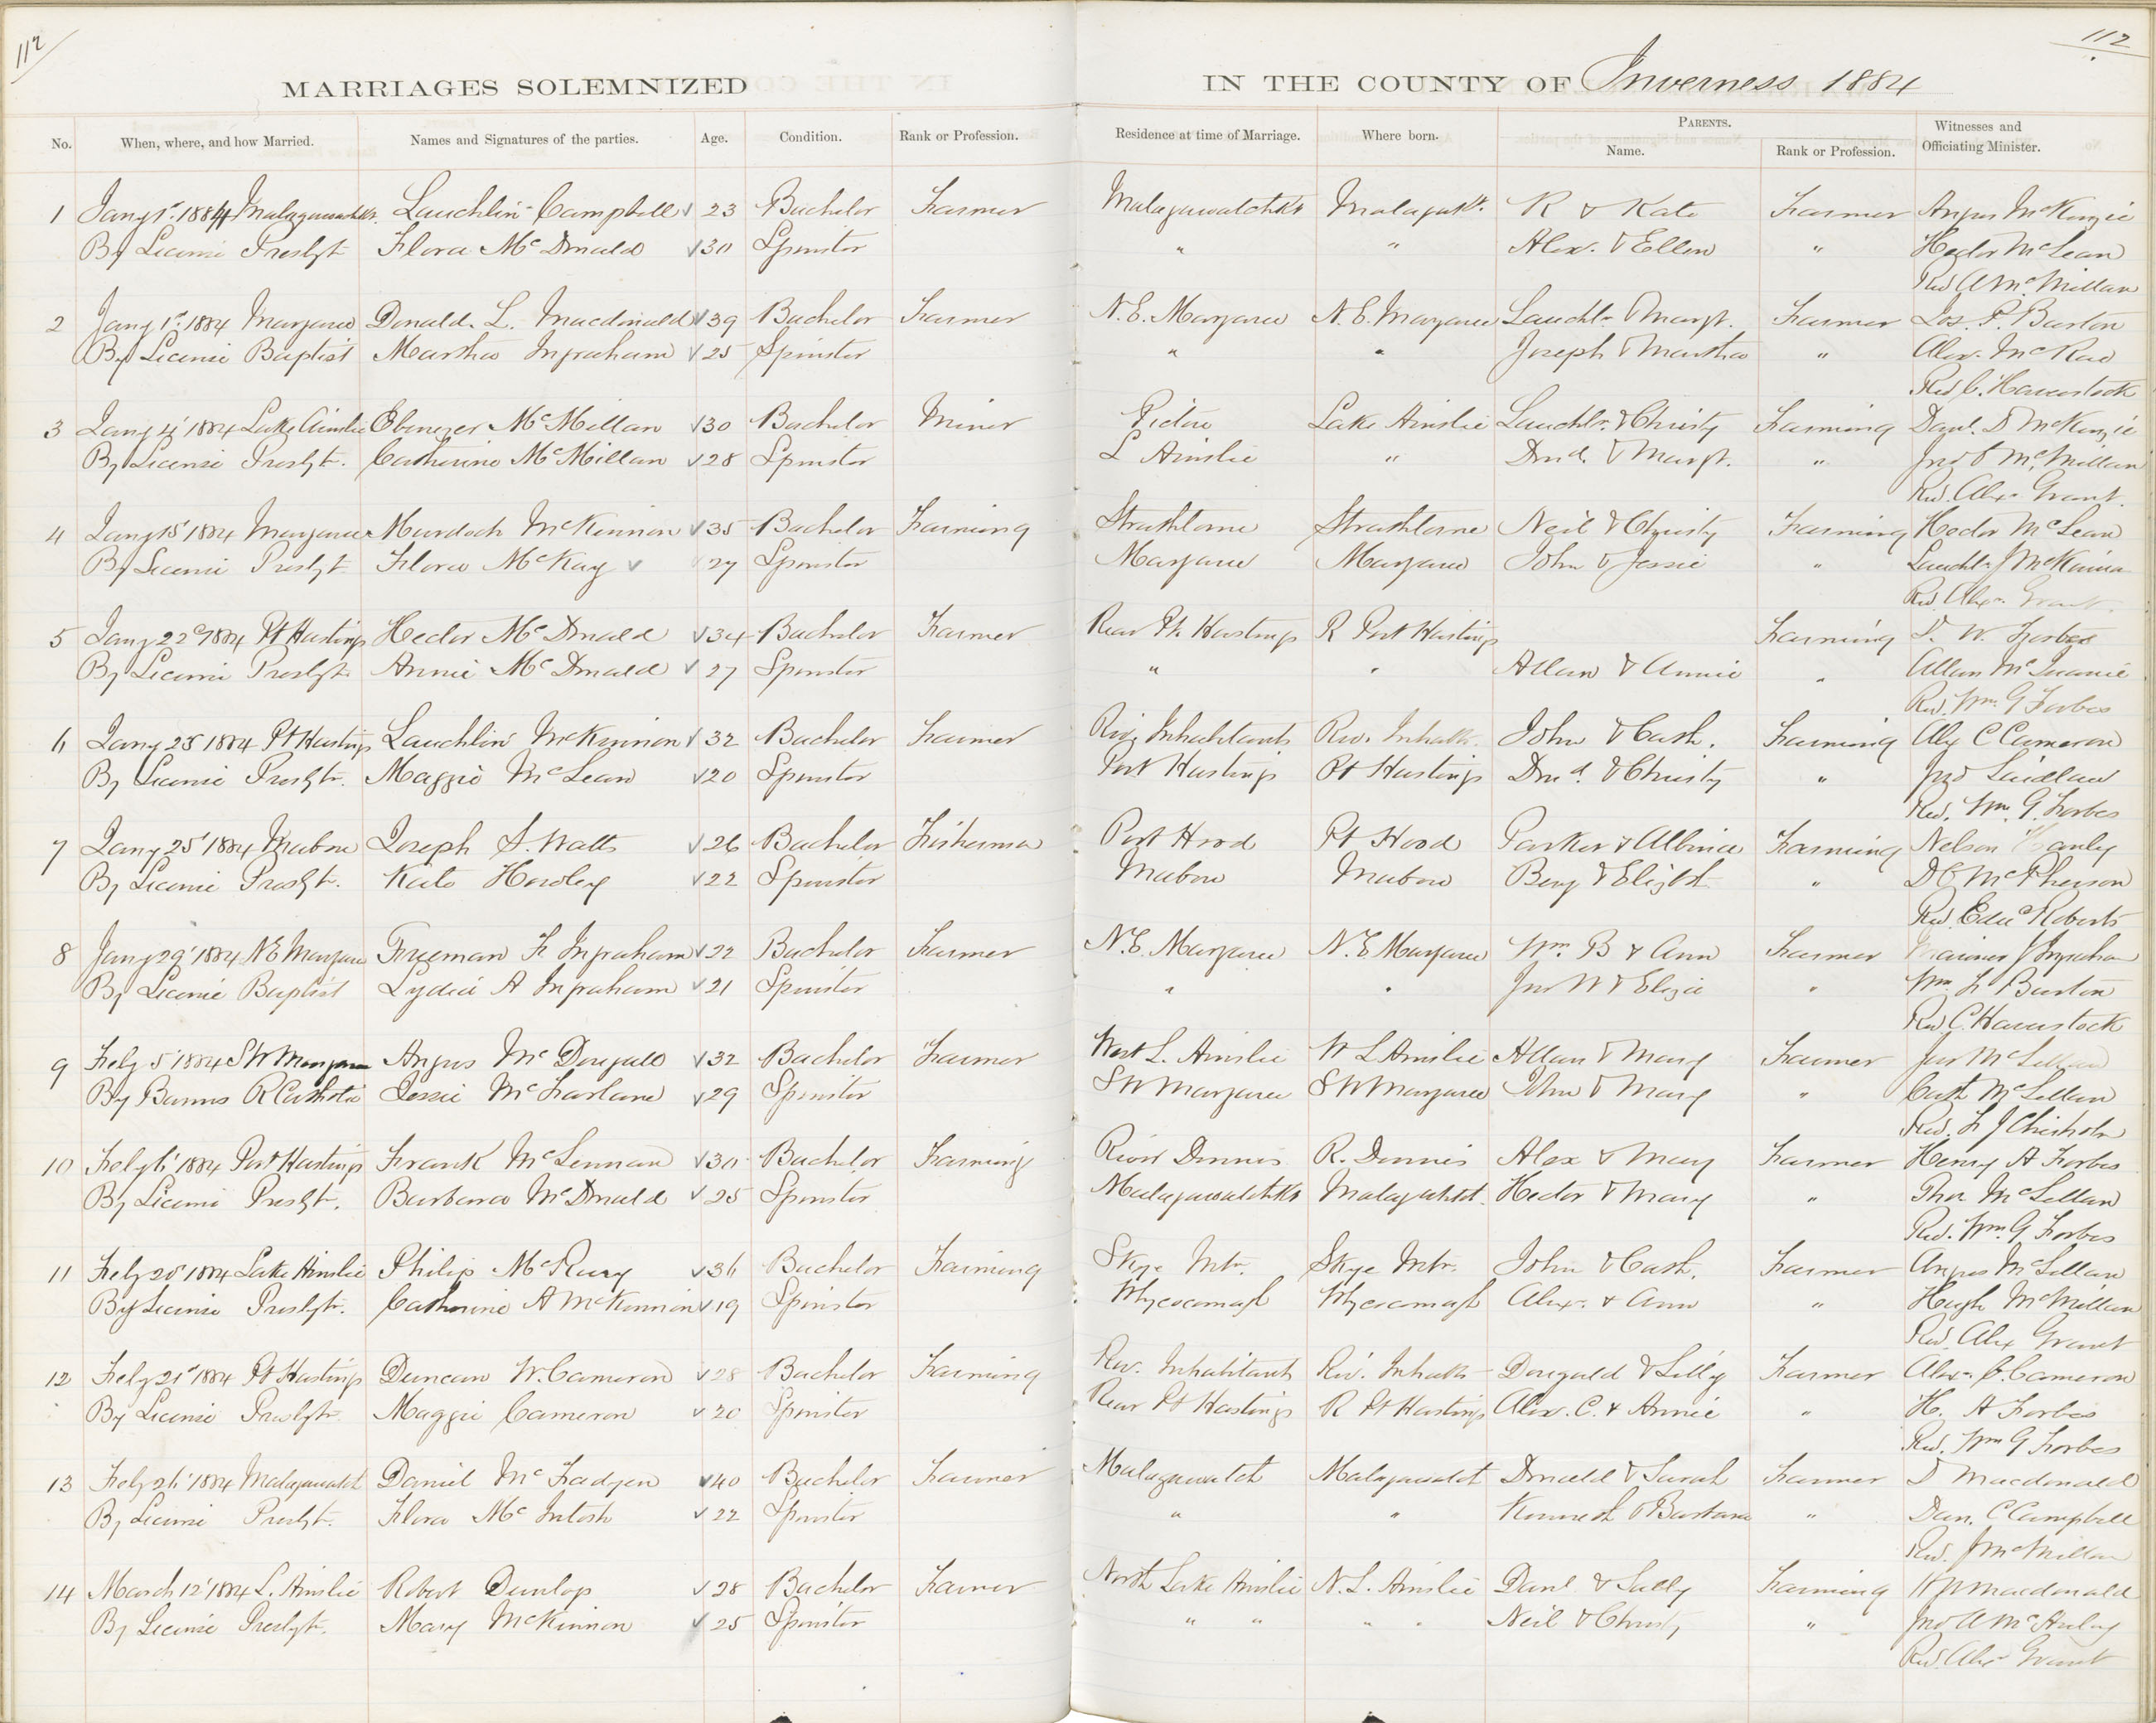 112
112
MARRIAGES SOLEMNIZED IN THE COUNTY OF Inverness 1884
No. When, where, and how Married. Names and Signatures of the parties. Age. Condition. Rank or Profession. Residence at time of Marriage. Where born. PARENTS. Name. Rank or Profession. Witnesses and Officiating Minister.
1 Jany 1st 1884 Malagawatchkt Lauchlin Campbell 23 Bachelor Farmer Malagawatchkt Malagaktt R & Kate Farmer Angus McKenzie
By License Presbyt Flora McDonald 30 Spinster " " Alex. & Ellen " Hector McLean
Rev A McMillan
2 Jany 1st 1884 Margaree Donald L. Macdonald 39 Bachelor Farmer N.E. Margaree N.E. Margaree Lauchln & Margt. Farmer Jos. P. Burton
By License Baptist Martha Ingraham 25 Spinster " " Joseph & Martha " Alex. McRae
Rev C. Haverstock
3 Jany 4 1884 Lake Ainslie Ebenezer McMillan 30 Bachelor Miner Pictou Lake Ainslie Lauchln. & Christy Farming Danl. D McKenzie
By License Presbyt. Catherine McMillan 28 Spinster L Ainslie " Dnd. & Margt. " Jno McMillan
Rev. Alexr Grant
4 Jany 15 1884 Margaree Murdoch McKinnon 35 Bachelor Farming Strathlorne Strathlorne Neil & Christy Farming Hector McLean
By License Presbyt Flora McKay 27 Spinster Margaree Margaree John & Jessie " Lauchln J McKinnon
Rev Alexr. Grant.
5 Jany 22d 1884 Pt Hastings Hector McDonald 34 Bachelor Farmer Rear Pt. Hastings R Port Hastings Farming D. W. Forbes
By License Presbyt. Annie McDonald 27 Spinster " " Allan & Annie " Allan McQuarrie
Rev. Wm. G Forbes
6 Jany 25 1884 Pt Hastings Lauchlin McKinnon 32 Bachelor Farmer Riv. Inhabitants Riv. Inhabts. John & Cath. Farming Alex C Cameron
By License Presbyt. Maggie McLean 20 Spinster Port Hastings Pt Hastings Dnd. & Christy " Jno Laidlaw
Rev. Wm. G. Forbes
7 Jany 25 1884 Mabou Joseph S. Watts 26 Bachelor Fisherman Port Hood Pt Hood Parker & Albina Farming Nelson
By License Presbyt. Kate Hawley 22 Spinster Mabou Mabou Benj & Elizbt " D McPherson
Rev. Edwd Roberts
8 Jany 29 1884 N E Margaree Freeman F Ingraham 22 Bachelor Farmer N.E. Margaree N.E Margaree Wm. B & Ann Farmer J Ingraham
By License Baptist Lydia A Ingraham 21 Spinster " " Jno W & Eliza " Wm. F Burton
Rev. C. Haverstock
9 Feby 5 1884 S W Margaree Angus McDougall 32 Bachelor Farmer West L. Ainslie W L Ainslie Allan & Mary Farmer Jno McLellan
By Banns R Catholic Jessie McFarlane 29 Spinster S W Margaree S W Margaree John & Mary " Cath McLellan
Rev. F J Chisholm
10 Feby 6 1884 Port Hastings Frank McLennan 30 Bachelor Farming River Dennis R. Dennis Alex & Mary Farmer Henry A Forbes
By License Presbyt. Barbara McDonald 25 Spinster Malagawatchkt Malagawtcht. Hector & Mary " Thos McLellan
Rev. Wm. G Forbes
11 Feby 20 1884 Lake Ainslie Philip McRury 36 Bachelor Farming Skye Mtn. Skye Mtn. John & Cath. Farmer Angus McLellan
By License Presbyt. Catherine A McKinnon 19 Spinster Whycocomagh Whycocomagh Alexr. & Ann " Hugh McMillan
Rev. Alex Grant
12 Feby 21st 1884 Pt Hastings Duncan W. Cameron 28 Bachelor Farming Riv. Inhabitants Riv. Inhabts Dougald & Lilly Farmer Alexr. C. Cameron
By License Presbyt. Maggie Cameron 20 Spinster Rear Pt Hastings R Pt Hastings Alex. C. & Annie " H. A Forbes
Rev. Wm G Forbes
13 Feby 26 1884 Malagawatch Daniel McFadyen 40 Bachelor Farmer Malagawatch Malagawatch Donald & Sarah Farmer D Macdonald
By License Presbyt. Flora McIntosh 22 Spinster " " Kenneth & Barbara " Dan. C Campbell
Rev. J McMillan
14 March 12 1884 L. Ainslie Robert Dunlop 28 Bachelor Farmer North Lake Ainslie N.L. Ainslie Danl & Sally Farming Macdonald
By License Presbyt. Mary McKinnon 25 Spinster " " " " Neil & Christy " Jno A McAulay
Rev. Alexr Grant